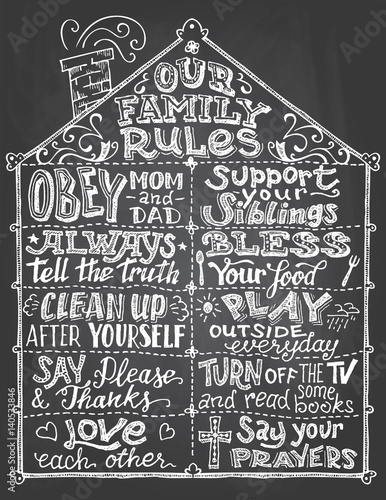 OUR
FAMILY
RULES
OBEY MOM
and
DAD
Support
your
Siblings
ALWAYS
tell the truth
BLESS
Your food
CLEAN UP
AFTER YOURSELF
PLAY
OUTSIDE
everyday
SAY Please
& Thanks
TURN OFF THE TV
and read some
books
Love
each other
Say your
PRAYERS
140523846
Adobe Stock